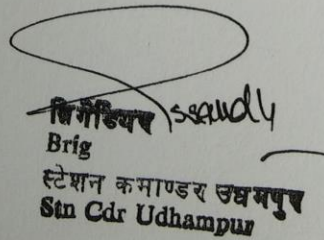 ब्रिगेडियर
Brig
स्टेशन कमाण्डर उधमपुर
Stn Cdr Udhampur